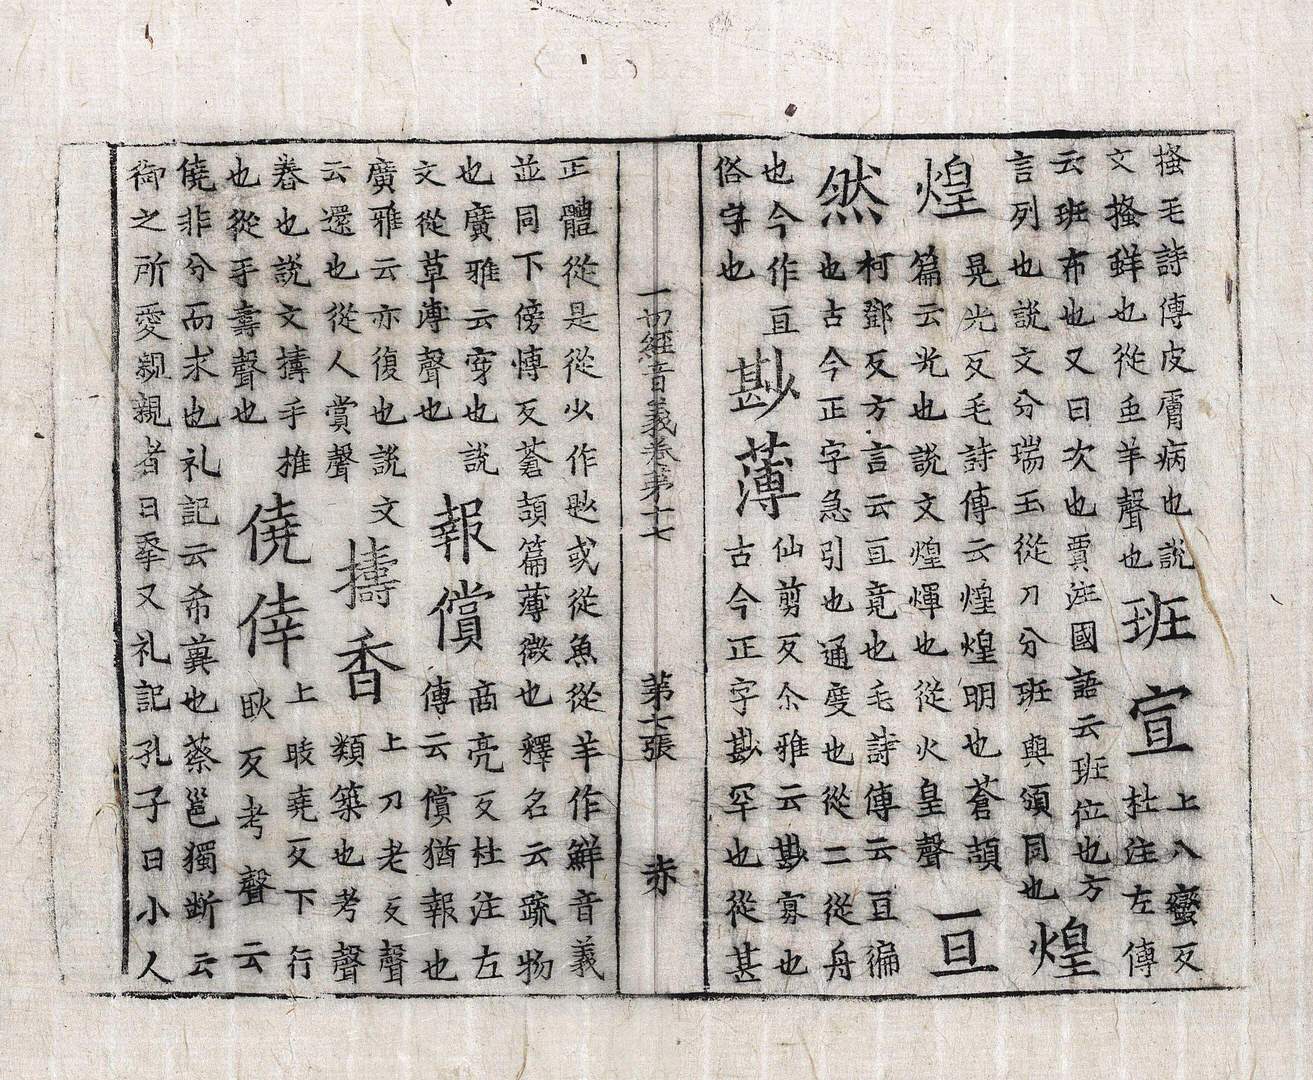 搔毛詩傳皮膚病也說
文搔鮮也從虫羊聲也
班宣
上八蠻反
杜注左傳
云班布也又曰次也賈注國語云班位也方
言列也說文分瑞玉從刀分班與頒同也
煌煌
晃光反毛詩傳云煌煌明也蒼頡
篇云光也說文煌煇也從火皇聲
亘然
柯鄧反方言云亘竟也毛詩傳云亘徧
也古今正字急引也通度也從二從舟
也今作亘
俗字也
尠薄
仙剪反尒雅云尠寡也
古今正字尠罕也從甚
一切經音義卷第十七
第七張
赤
正體從是從少作尟或從魚從羊作鮮音義
並同下傍愽反蒼頡篇薄微也釋名云疏物
也廣雅云穿也說
文從草溥聲也
報償
商亮反杜注左
傳云償猶報也
廣雅云亦復也說文
云還也從人賞聲
擣香
上刀老反聲
類築也考聲
舂也說文擣手推
也從手壽聲也
僥倖
上晈堯反下行
耿反考聲云
僥非分而求也礼記云希兾也蔡邕獨断云
御之所愛親親者曰㚔又礼記孔子曰小人